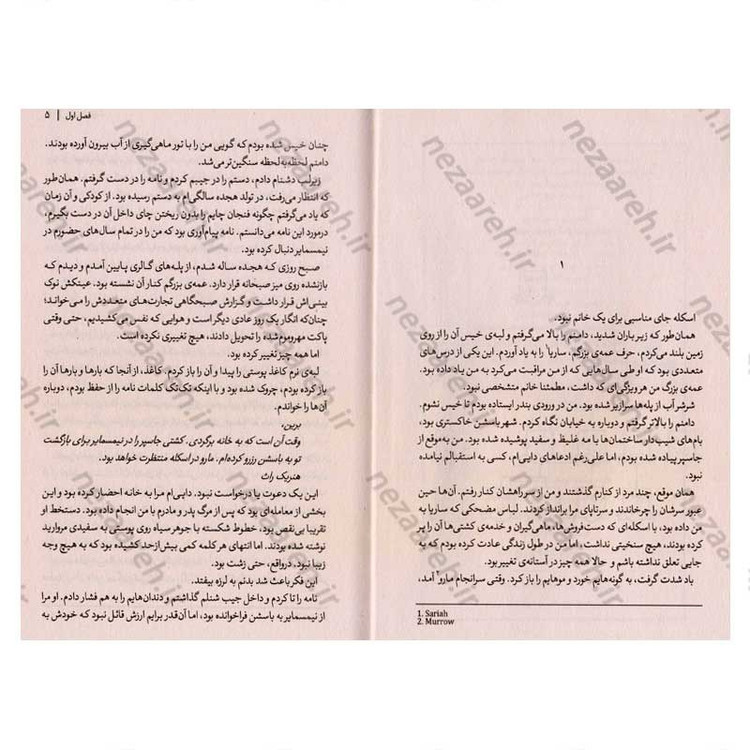 ۱
اسکله جای مناسبی برای یک خانم نبود.
همان‌طور که زیر باران شدید، دامنم را بالا می‌گرفتم و لبه‌ی خیس آن را از روی
زمین بلند می‌کردم، حرف عمه‌ی بزرگم، ساریا¹ را به یاد آوردم. این یکی از درس‌های
متعددی بود که او طی سال‌هایی که از من مراقبت می‌کرد به من یاد داده بود.
عمه‌ی بزرگ من هر ویژگی‌ای که داشت، مطمئنا خانم متشخصی نبود.
شرشر آب از پله‌ها سرازیر شده بود. من در ورودی بندر ایستاده بودم تا خیس نشوم.
دامنم را بالاتر گرفتم و دوباره به خیابان نگاه کردم. شهر باسشن خاکستری بود،
بام‌های شیب‌دار ساختمان‌ها با مه غلیظ و سفید پوشیده شده بود. من به‌موقع از
جاسپر پیاده شده بودم، اما علی‌رغم ادعاهای دایی‌ام، کسی به استقبالم نیامده
نبود.
همان موقع، چند مرد از کنارم گذشتند و من از سر راهشان کنار رفتم. آن‌ها حین
عبور سرشان را چرخاندند و سرتاپای مرا برانداز کردند. لباس مضحکی که ساریا به
من داده بود، با اسکله‌ای که دست‌فروش‌ها، ماهی‌گیران و خدمه‌ی کشتی‌ها آن را پر
کرده بودند، هیچ سنخیتی نداشت، اما من در طول زندگی عادت کرده بودم که به
جایی تعلق نداشته باشم و حالا همه چیز در آستانه‌ی تغییر بود.
باد شدت گرفت، به گونه‌هایم خورد و موهایم را باز کرد. وقتی سرانجام مارو² آمد،
1. Sariah
2. Murrow
فصل اول | ۵
چنان خیس شده بودم که گویی من را با تور ماهی‌گیری از آب بیرون آورده بودند.
دامنم لحظه‌به‌لحظه سنگین‌تر می‌شد.
زیرلب دشنام دادم، دستم را در جیبم کردم و نامه را در دست گرفتم. همان‌طور
که انتظار می‌رفت، در تولد هجده سالگی‌ام به دستم رسیده بود. از کودکی و آن زمان
که یاد می‌گرفتم چگونه فنجان چایم را بدون ریختن چای داخل آن در دست بگیرم،
درمورد این نامه می‌دانستم. نامه پیام‌آوری بود که من را در تمام سال‌های حضورم در
نیمسمایر دنبال کرده بود.
صبح روزی که هجده ساله شدم، از پله‌های گالری پایین آمدم و دیدم که
بازنشده روی میز صبحانه قرار دارد. عمه‌ی بزرگم کنار آن نشسته بود. عینکش نوک
بینی‌اش قرار داشت و گزارش صبحگاهی تجارت‌های متعددش را می‌خواند؛
چنان‌که انگار یک روز عادی دیگر است و هوایی که نفس می‌کشیدیم، حتی وقتی
پاکت مهروموم‌شده را تحویل دادند، هیچ تغییری نکرده است.
اما همه چیز تغییر کرده بود.
لبه‌ی نرم کاغذ پوستی را پیدا و آن را باز کردم. کاغذ، از آنجا که بارها و بارها آن را
باز کرده بودم، چروک شده بود و با اینکه تک‌تک کلمات نامه را از حفظ بودم، دوباره
آن‌ها را خواندم.
برین،
وقت آن است که به خانه برگردی. کشتی جاسپر را در نیمسمایر برای بازگشت
تو به باسشن رزرو کرده‌ام. مارو در اسکله منتظرت خواهد بود.
هنریک راث
این یک دعوت یا درخواست نبود. دایی‌ام مرا به خانه احضار کرده بود و این
بخشی از معامله‌ای بود که پس از مرگ پدر و مادرم با من انجام داده بود. دستخط او
تقریبا بی‌نقص بود. خطوط شکسته با جوهر سیاه روی پوستی به سفیدی مروارید
نوشته شده بودند. اما انتهای هر کلمه کمی بیش‌ازحد کشیده بود که به هیچ وجه
زیبا نبود. درواقع، حتی زشت بود.
این فکر باعث شد بدنم به لرزه بیفتد.
نامه را تا کردم و داخل جیب شنلم گذاشتم و دندان‌هایم را به هم فشار دادم. او مرا
از نیمسمایر به باسشن فراخوانده بود، اما آن‌قدر برایم ارزش قائل نبود که خودش به
nezaareh.ir